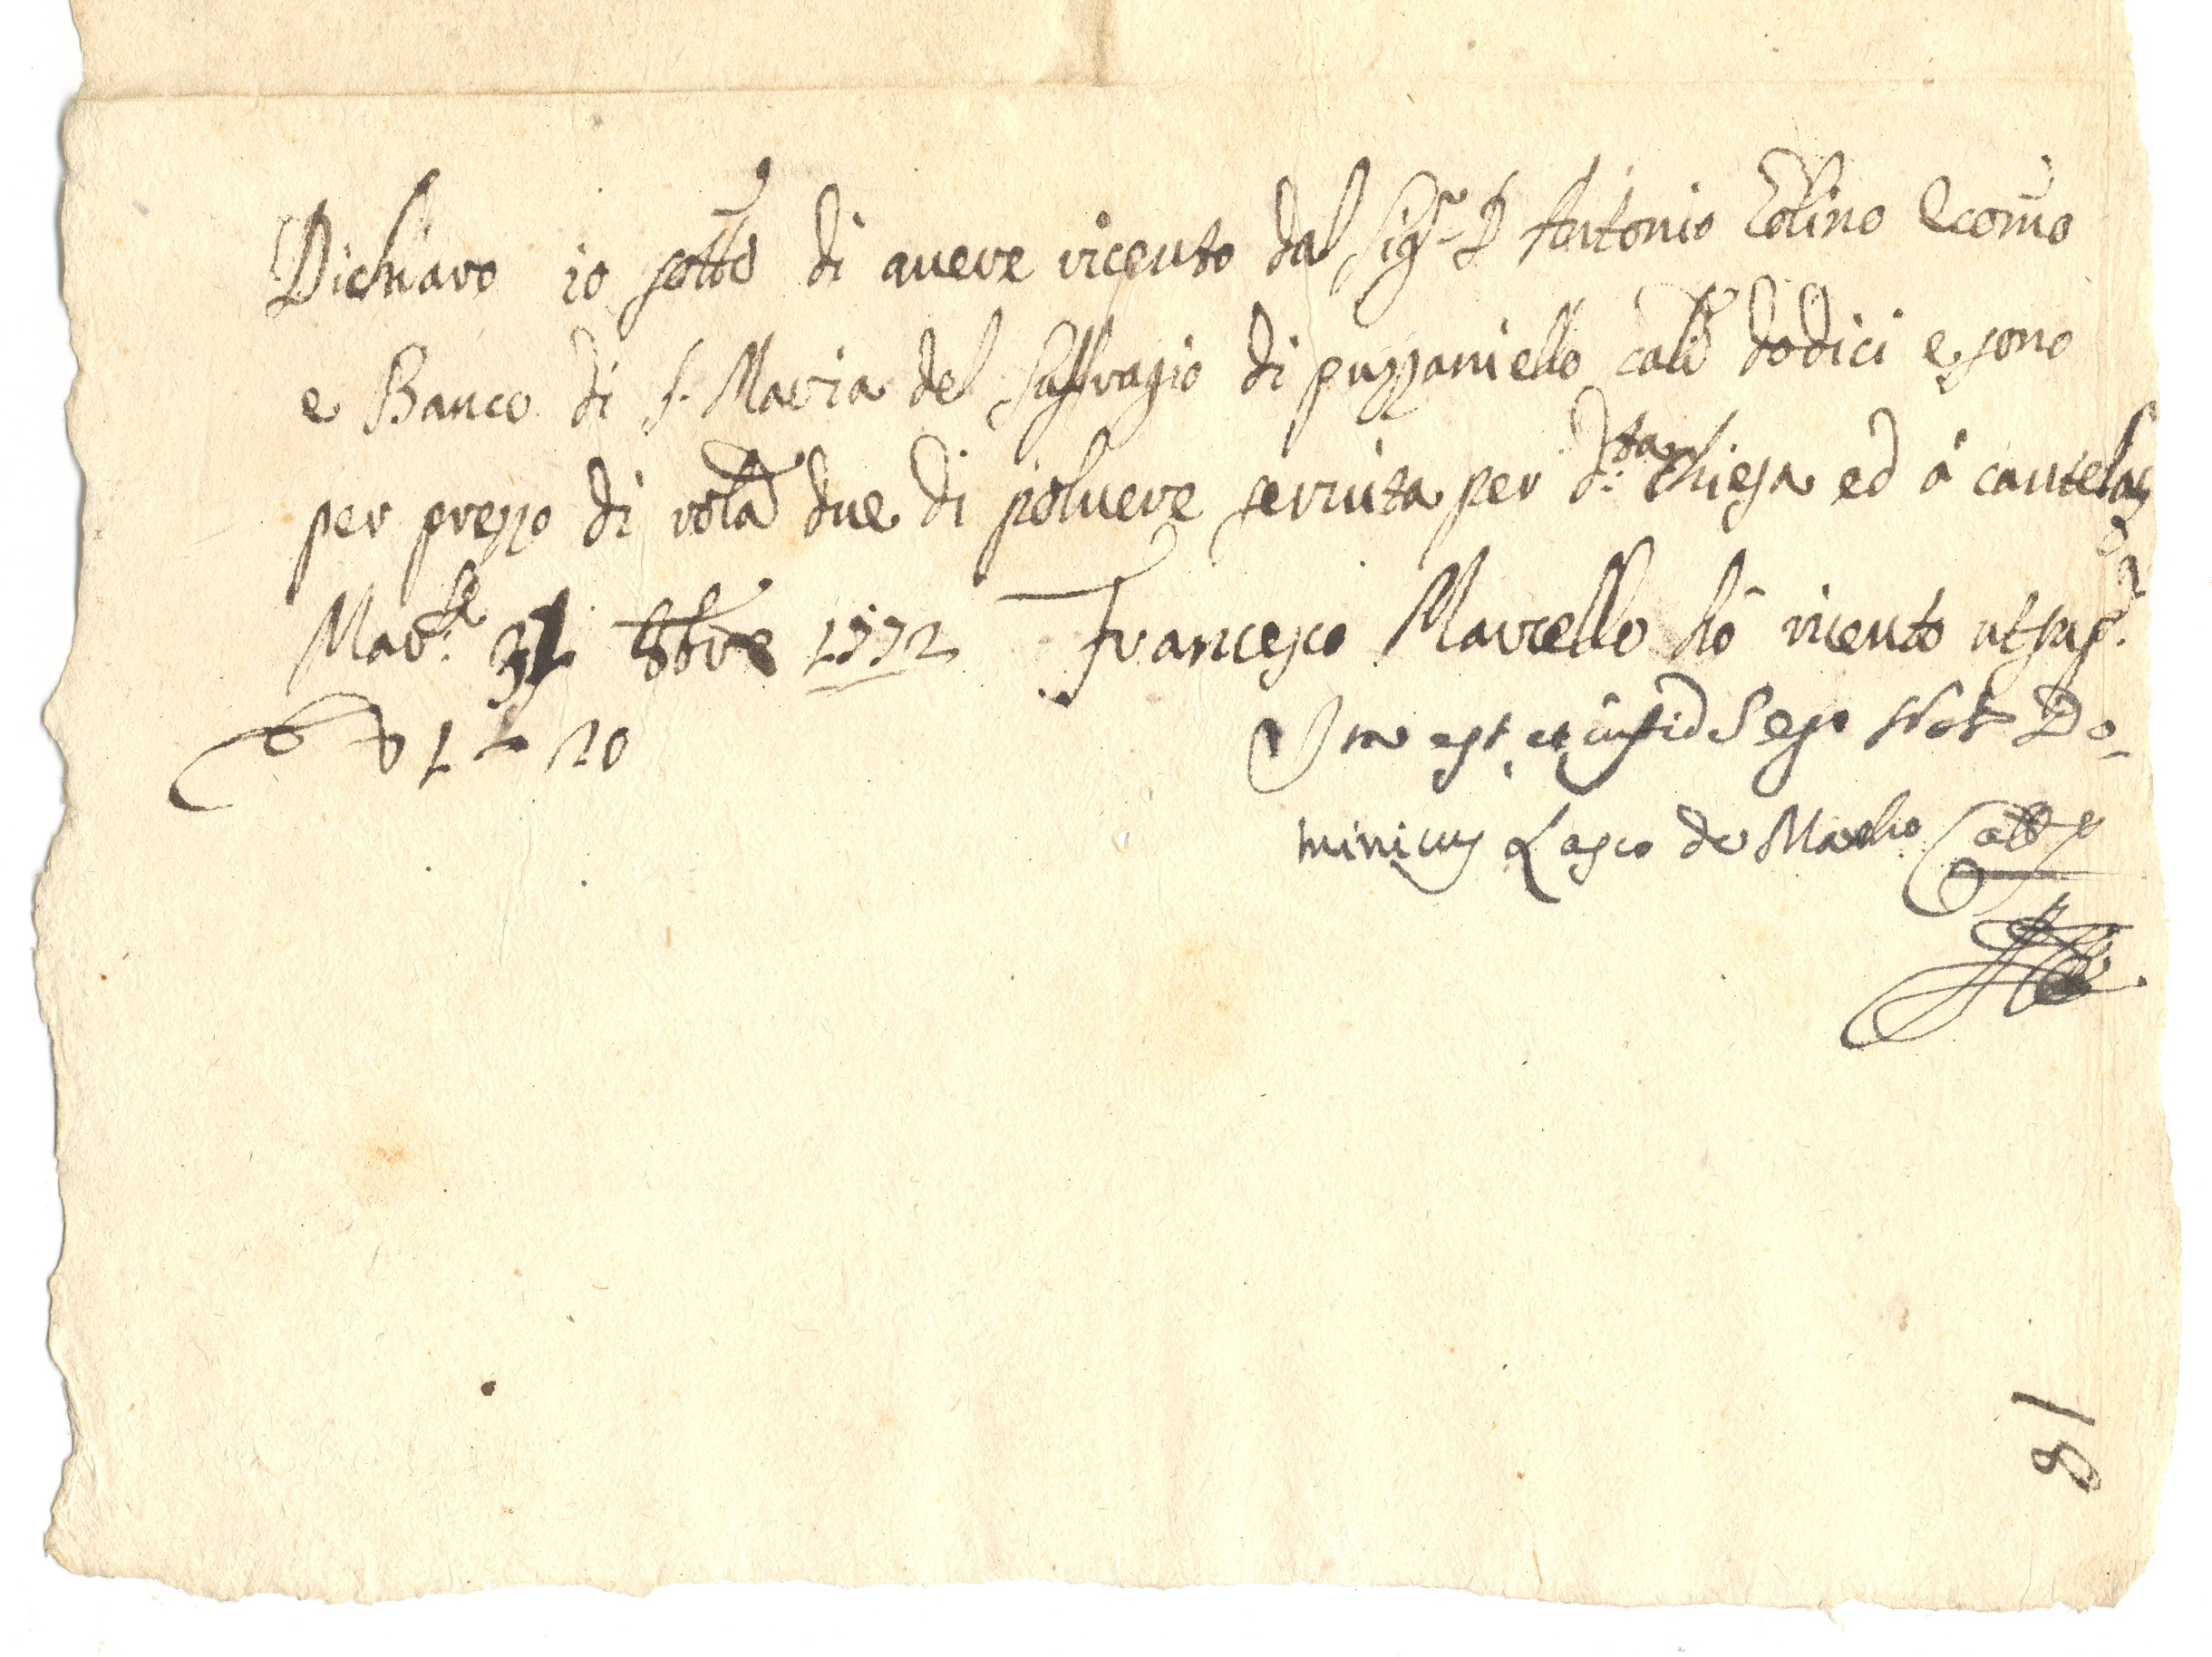 Dichiaro io sotto di avere riceuto dal Sig.r D Antonio Colino Econo
e Banco di S. Maria del Suffragio di puzzaniello carli dodici e sono
per prezzo di rola due di polvere servuta per d.ta Chiesa ed à cautela
Mar.lla 31 8bre 1772 Francesco Marcello hò riceuto ut sup.a
1 - 20
Ita est et in fid S ego Not Do-
minicus Lasco de
18